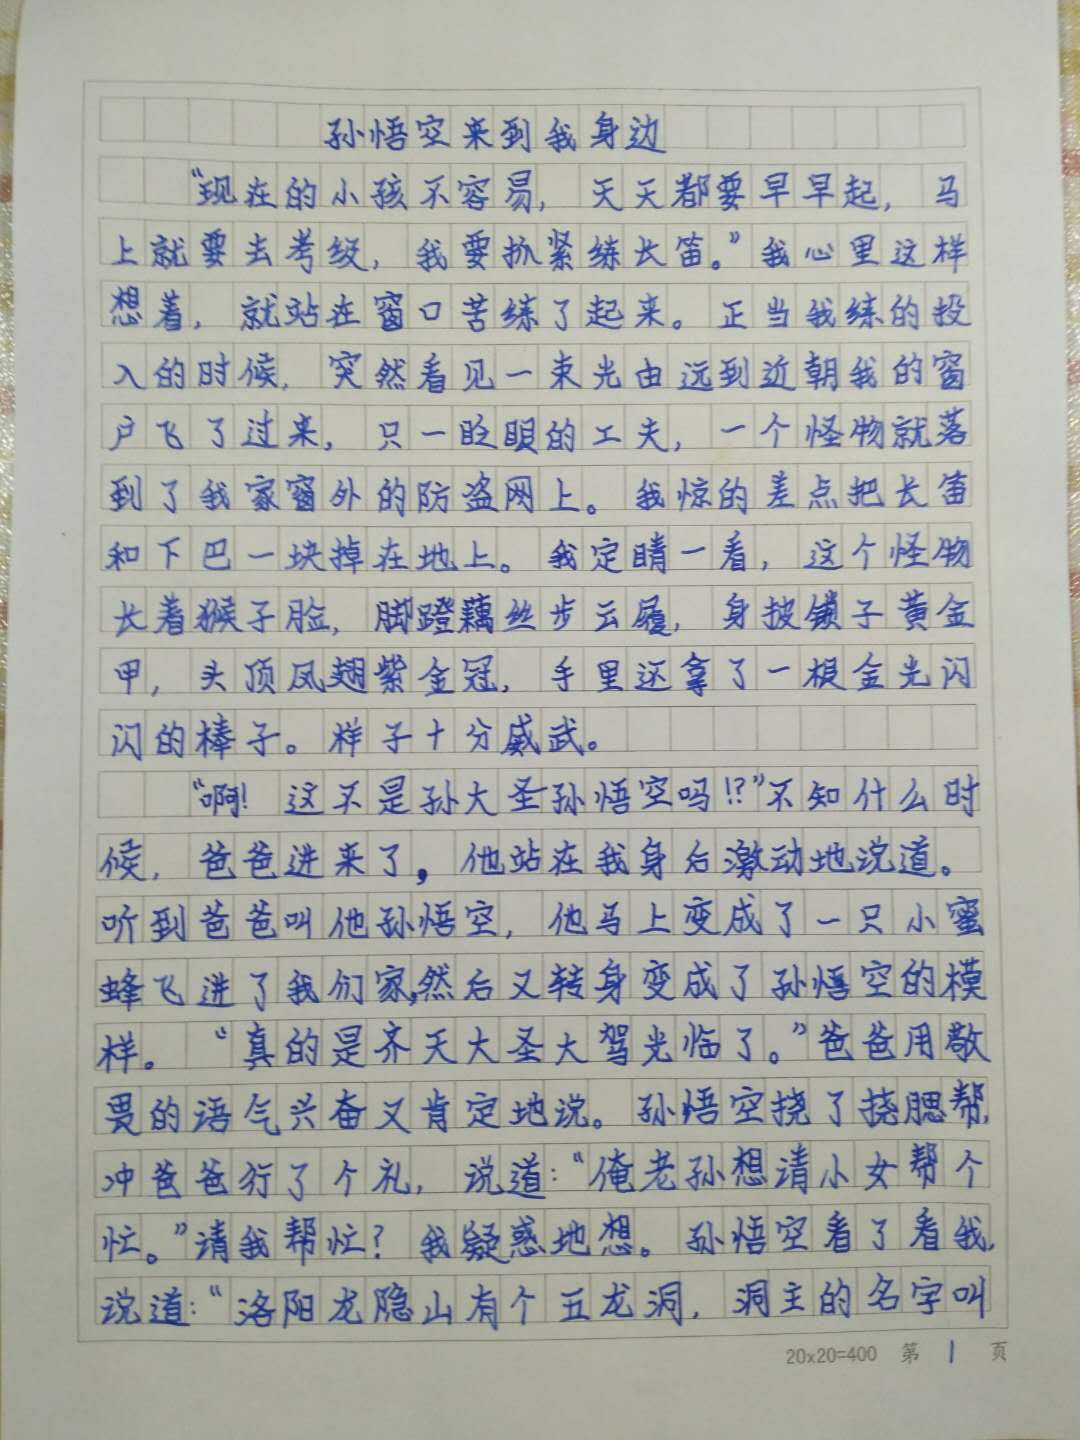 孙悟空来到我身边
“现在的小孩不容易，天天都要早早起，马
上就要去考级，我要抓紧练长笛。”我心里这样
想着，就站在窗口苦练了起来。正当我练的投
入的时候，突然看见一束光由远到近朝我的窗
户飞了过来，只一眨眼的工夫，一个怪物就落
到了我家窗外的防盗网上。我惊的差点把长笛
和下巴一块掉在地上。我定睛一看，这个怪物
长着猴子脸，脚蹬藕丝步云履，身披锁子黄金
甲，头顶凤翅紫金冠，手里还拿了一根金光闪
闪的棒子。样子十分威武。
“啊！这不是孙大圣孙悟空吗！？”不知什么时
候，爸爸进来了，他站在我身后激动地说道。
听到爸爸叫他孙悟空，他马上变成了一只小蜜
蜂飞进了我们家，然后又转身变成了孙悟空的模
样。“真的是齐天大圣大驾光临了。”爸爸用敬
畏的语气兴奋又肯定地说。孙悟空挠了挠腮帮，
冲爸爸行了个礼，说道：“俺老孙想请小女帮个
忙。”请我帮忙？我疑惑地想。孙悟空看了看我，
说道：“洛阳龙隐山有个五龙洞，洞主的名字叫
20×20=400 第 1 页